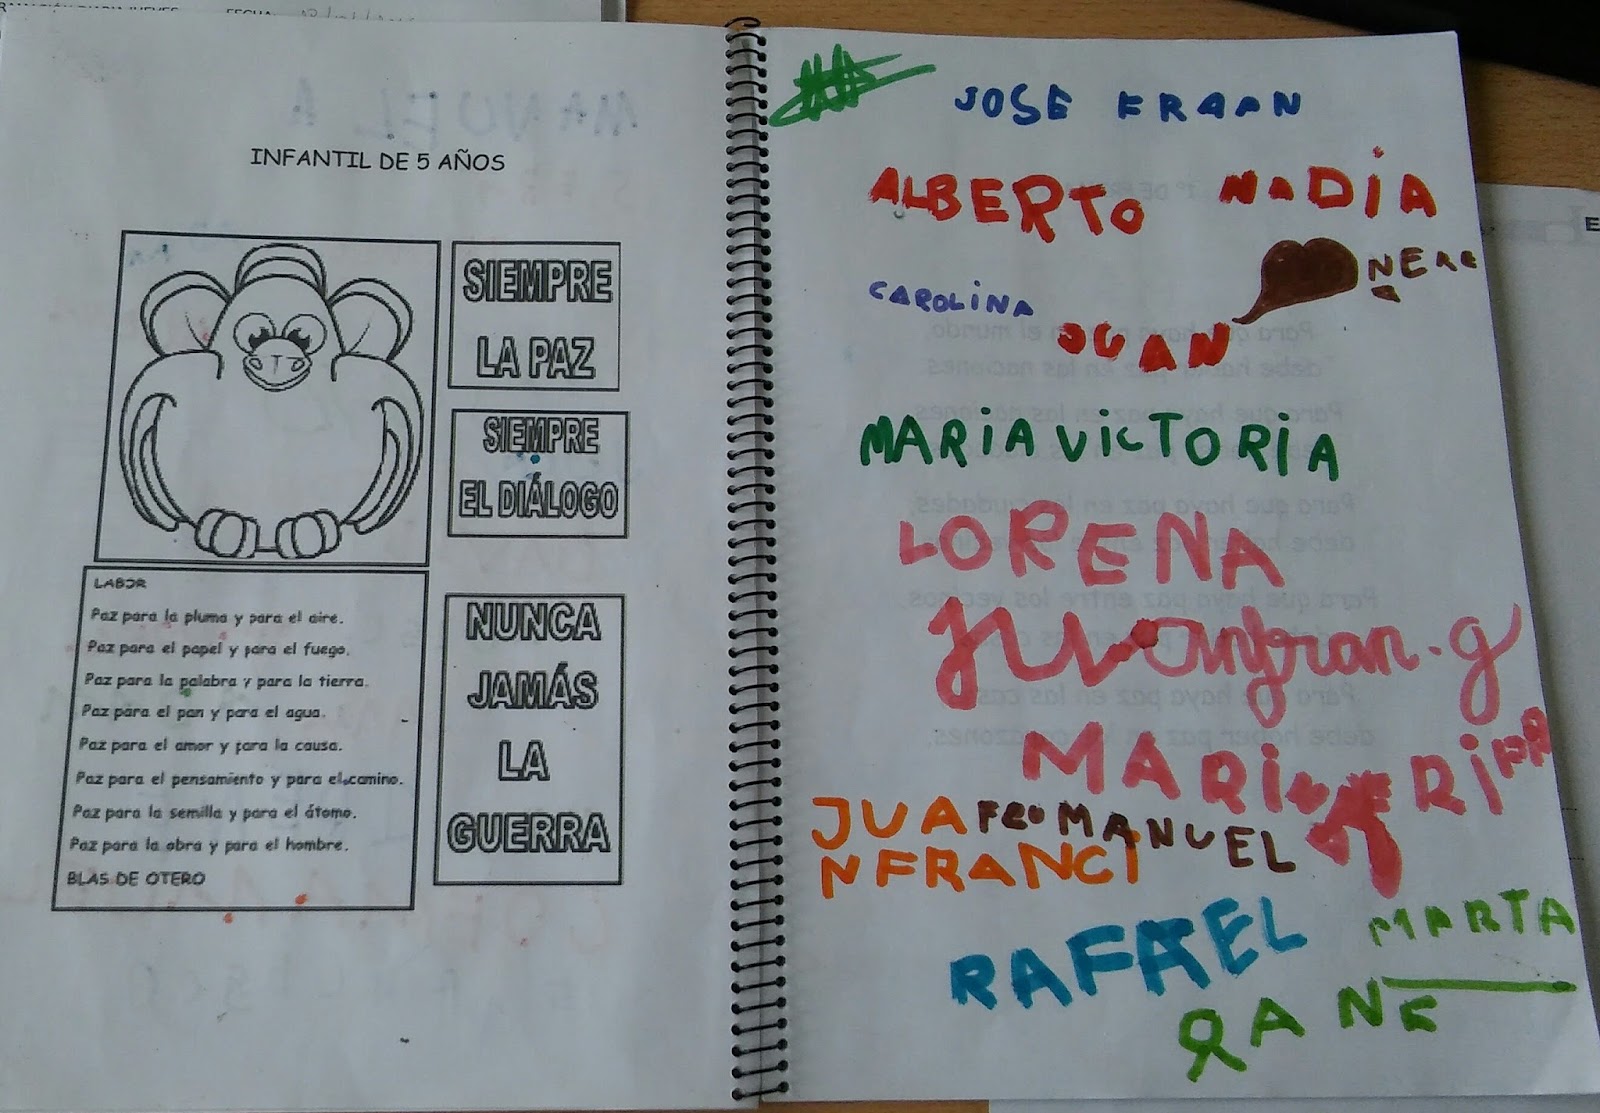 INFANTIL DE 5 AÑOS
SIEMPRE
LA PAZ
SIEMPRE
EL DIÁLOGO
NUNCA
JAMÁS
LA
GUERRA
LABOR
Paz para la pluma y para el aire.
Paz para el papel y para el fuego.
Paz para la palabra y para la tierra.
Paz para el pan y para el agua.
Paz para el amor y para la causa.
Paz para el pensamiento y para el camino.
Paz para la semilla y para el átomo.
Paz para la obra y para el hombre.
BLAS DE OTERO
JOSE FRAAN
ALBERTO NaDiA
NERE
A
CAROLiNA
JUAN
MARiAViCTORiA
LORENA
Juanfran.g
MARi
JUA FCO MANUEL
NFRANCi
RAFAEL
MARTA